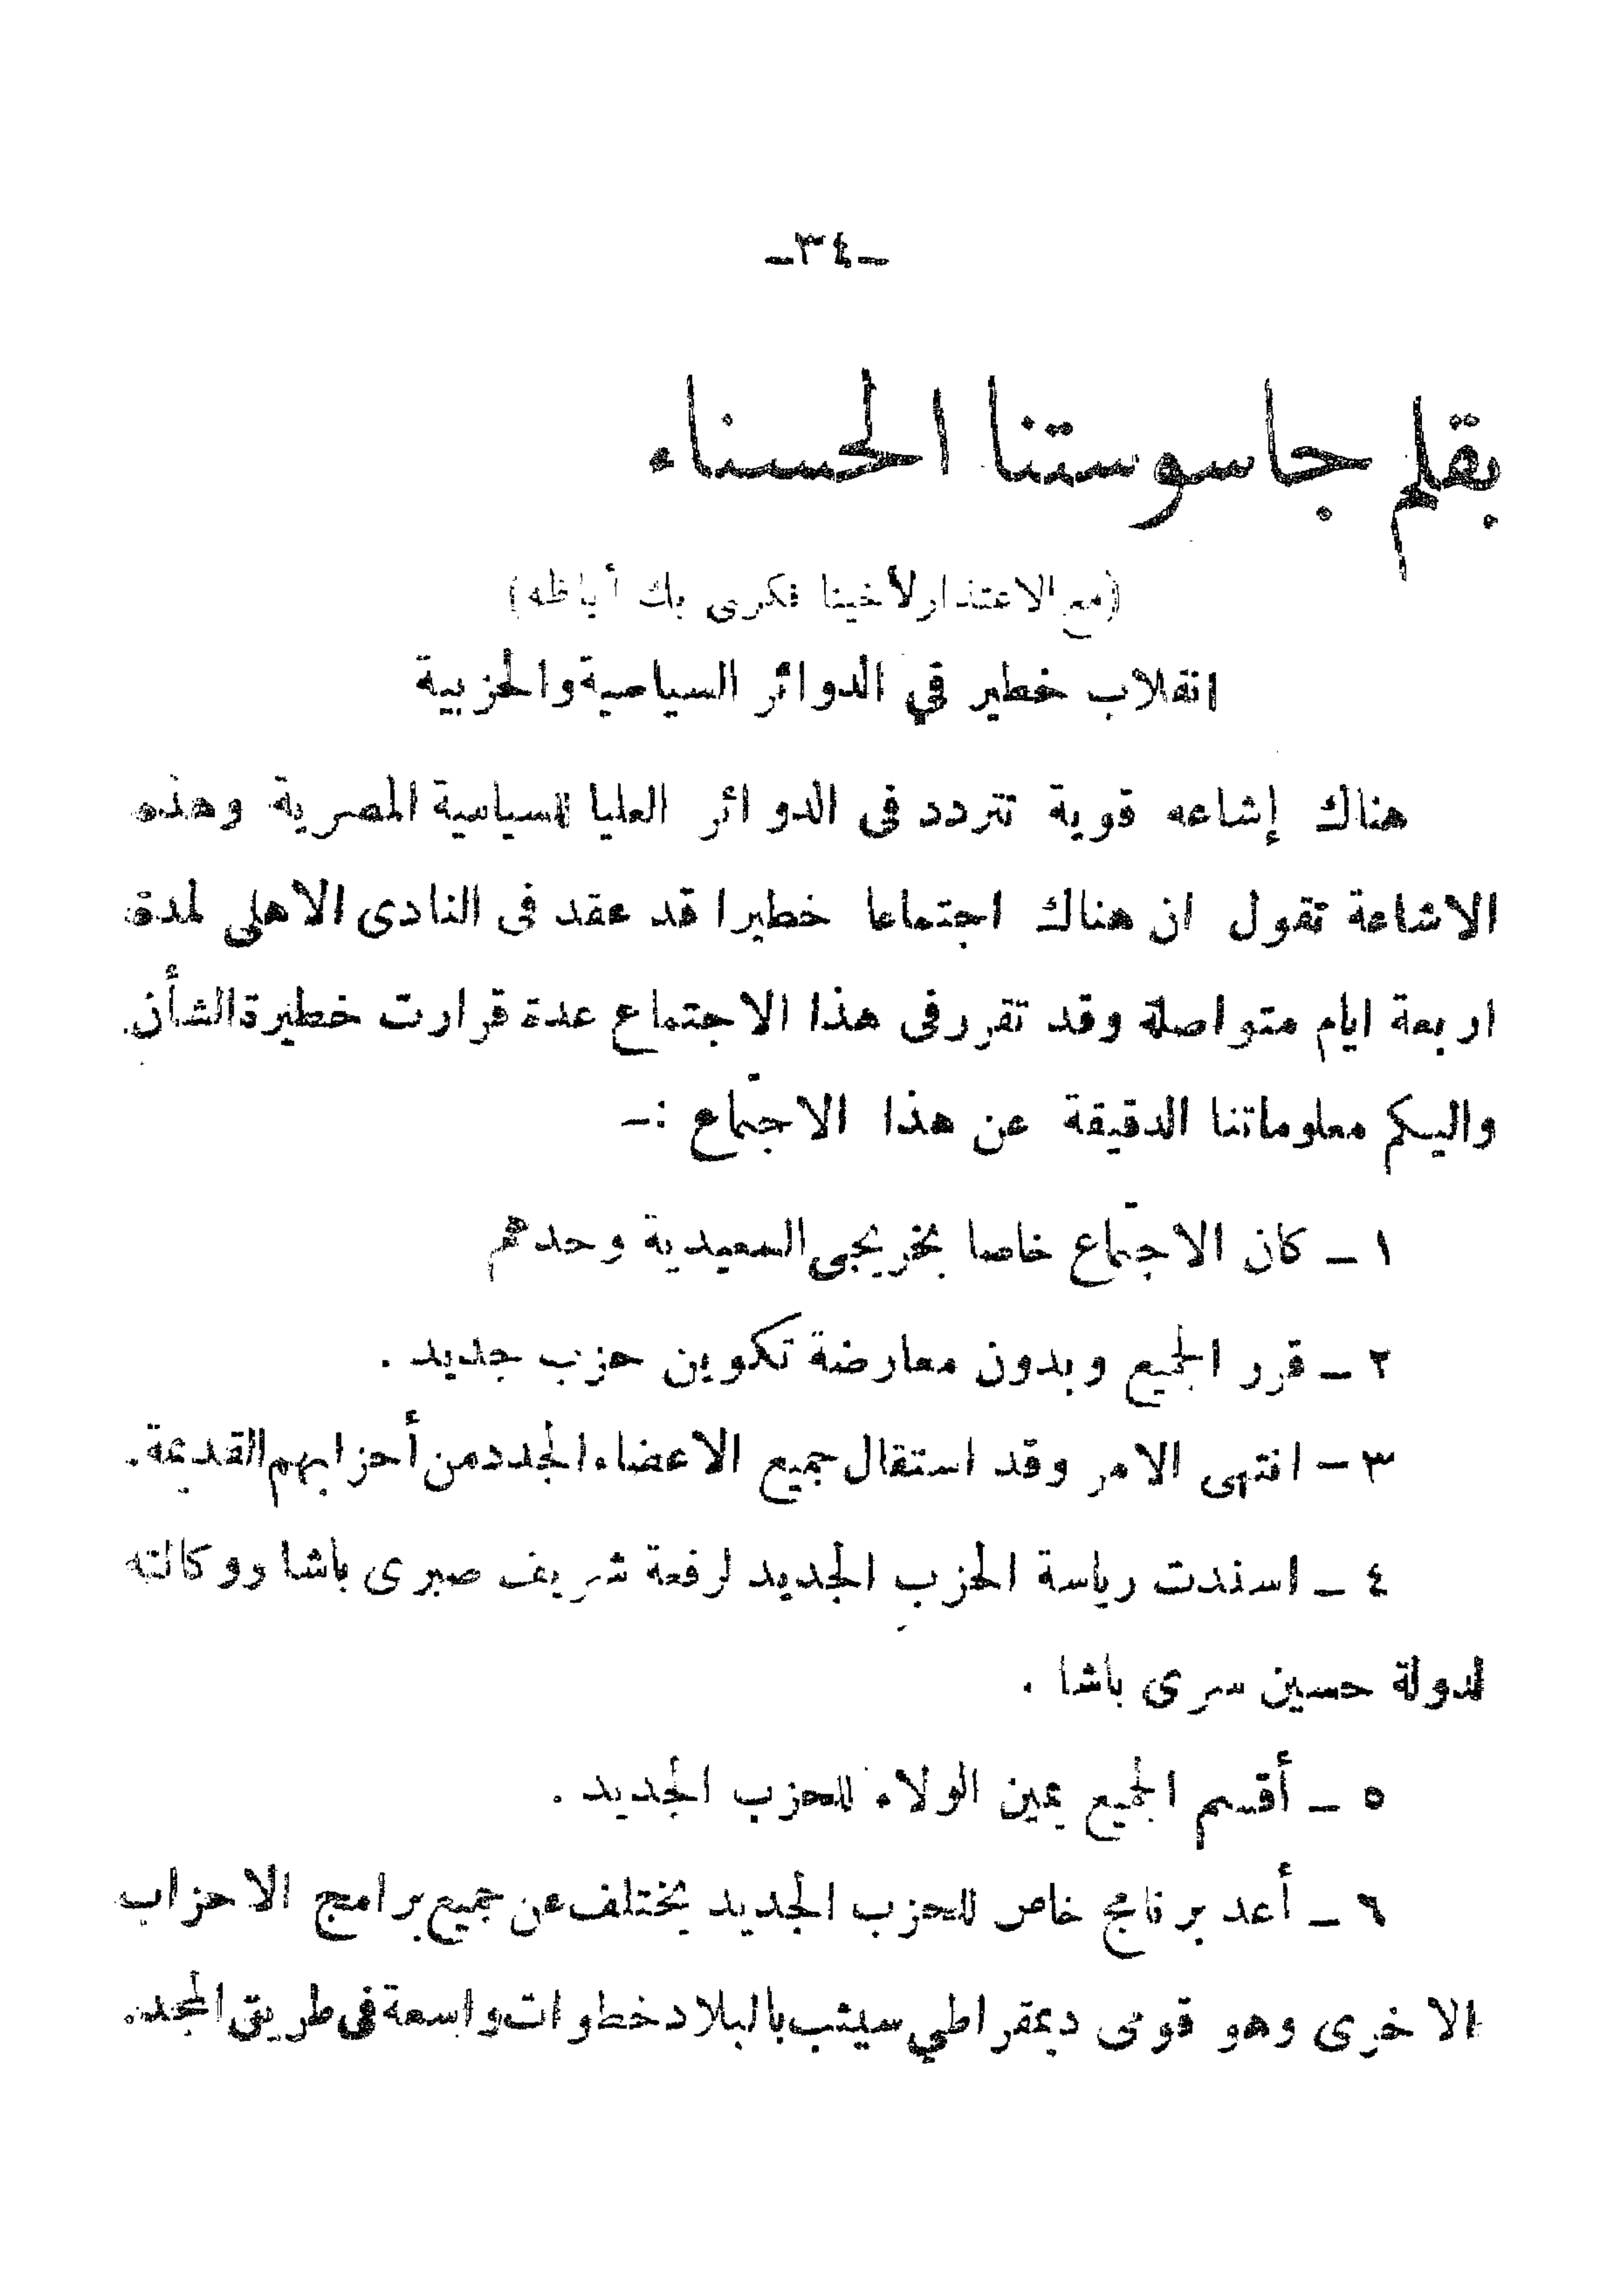 ـ٣٤ـ
بقلم جاسوستنا الحسناء
(مع الاعتذار لأخينا فكرى بك أباظه)
انقلاب خطير في الدوائر السياسية والحزبية
هناك إشاعه قوية تتردد فى الدوائر العليا للسياسية المصرية وهذه
الاشاعة تقول ان هناك اجتماعا خطيرا قد عقد فى النادى الاهلى لمدة
اربعة ايام متواصلة وقد تقرر فى هذا الاجتماع عدة قرارت خطيرة الشأن
واليكم معلوماتنا الدقيقة عن هذا الاجتماع :ـ
١ ـ كان الاجتماع خاصا بخريجى السعيدية وحدهم
٢ ـ قرر الجميع وبدون معارضة تكوين حزب جديد .
٣ ـ انتهى الامر وقد استقال جميع الاعضاء الجدد من أحزابهم القديمة .
٤ ـ اسندت رياسة الحزب الجديد لرفعة شريف صبرى باشا ووكالته
لدولة حسين سرى باشا .
٥ ـ أقسم الجميع يمين الولاء للحزب الجديد .
٦ ـ أعد برنامج خاص للحزب الجديد يختلف عن جميع برامج الاحزاب
الاخرى وهو قومى ديمقراطي سيثب بالبلاد خطوات واسعة فى طريق المجد.